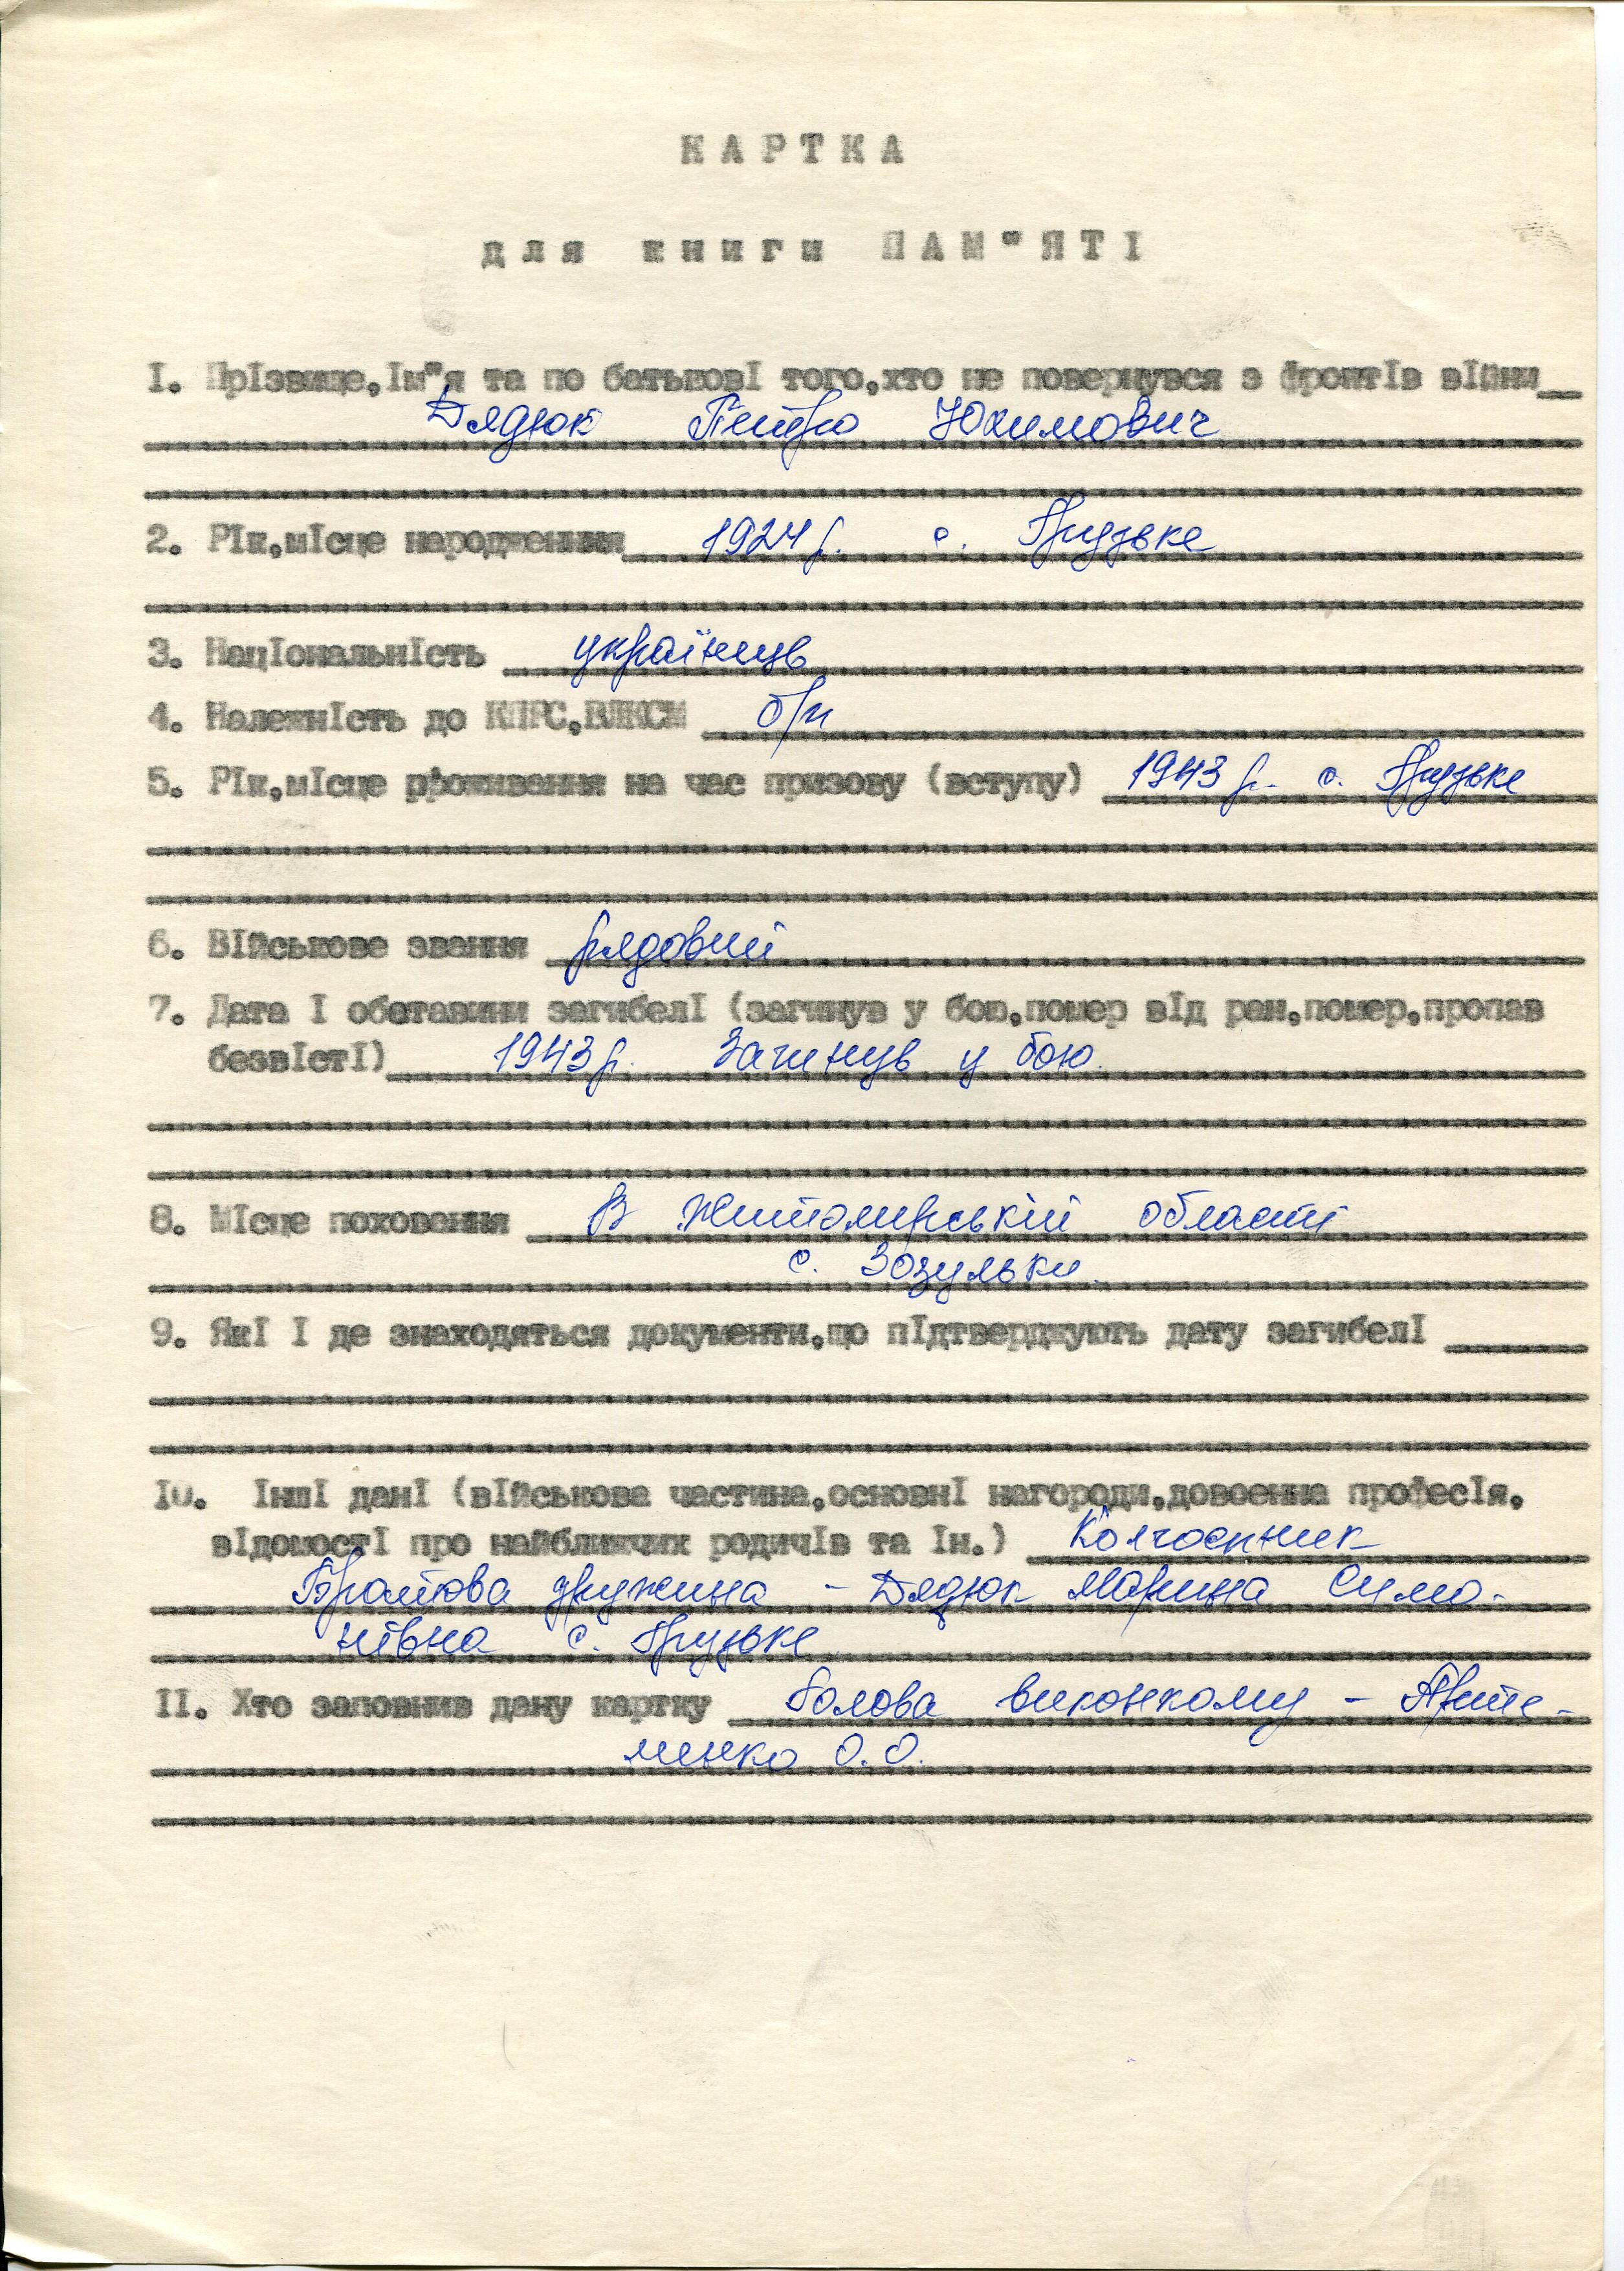 КАРТКА
для книги ПАМ"ЯТІ
І. Прізвище,ім"я та по батькові того,хто не повернувся з фронтів війни
Дядюк Петро Юхимович
2. Рік,місце народження 1924 р. с. Грузьке
3. Національність українець
4. Належність до КПРС,ВЛКСМ б/п
5. Рік,місце проживання на час призову (вступу) 1943 р. с. Грузьке
6. Військове звання рядовий
7. Дата і обставини загибелі (загинув у бою,помер від ран,помер,пропав
безвісті) 1943 р. Загинув у бою.
8. Місце поховання В Житомирській області
с. Зозульки.
9. Які і де знаходяться документи,що підтверджують дату загибелі
ІО. Інші дані (військова частина,основні нагороди,довоєнна професія,
відомості про найближчих родичів та ін.) Колгоспник
Братова дружина - Дядюк Марина Симо-
нівна с. Грузьке
ІІ. Хто заповнив дану картку Голова виконкому - Арте-
менко О.О.